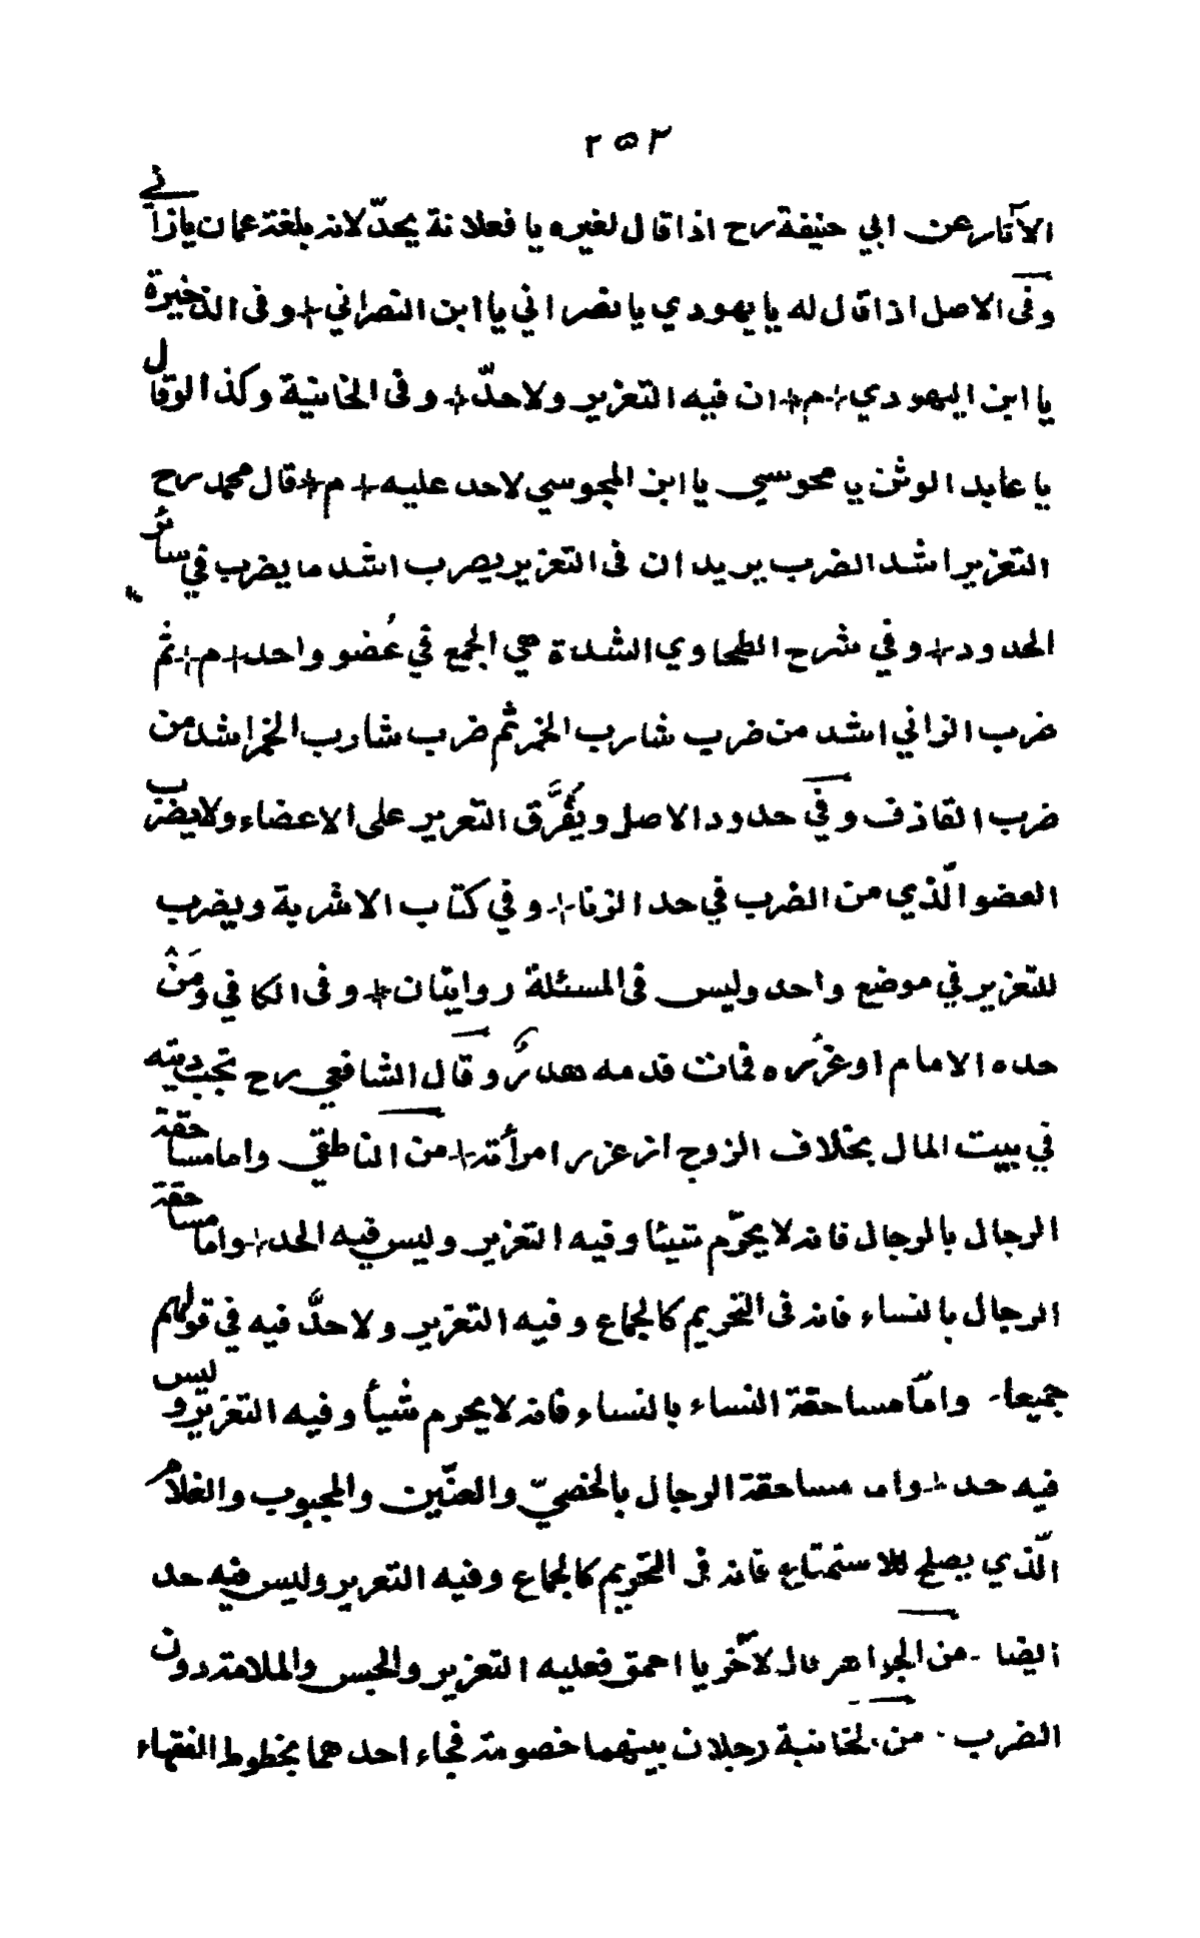 ٢٥٣
الآثار عن ابي حنيفة رح اذا قال لغيره يا فعلانة يحدّ لانه بلغة عمان يا زاني
وفى الاصل اذا قال له يا يهودي يا نصراني يا ابن النصراني + وفى الذخيرة
يا ابن اليهودي + م + ان فيه التعزير ولا حدّ + وفى الخانية وكذا لو قال
يا عابد الوثن يا مجوسي يا ابن المجوسي لا حد عليه + م + قال محمد رح
التعزير اشد الضرب يريد ان فى التعزير يضرب اشد ما يضرب في سائر
الحدود + وفي شرح الطحاوي الشدة هي الجمع في عُضو واحد + م + ثم
ضرب الزاني اشد من ضرب شارب الخمر ثم ضرب شارب الخمر اشد من
ضرب القاذف وفي حدود الاصل ويُفَرَّق التعزير على الاعضاء ولا يضرب
العضو الّذي من الضرب في حد الزنا + وفي كتاب الاشربة ويضرب
للتعزير في موضع واحد وليس فى المسئلة روايتان + وفى الكافي ومَنْ
حده الامام او عزّره فمات فدمه هدرٌ وقال الشافعي رح تجب ديته
في بيت المال بخلاف الزوج اذ عزر امرأته + من الناطقي واما مساحقة
الرجال بالرجال فانه لا يحرّم شيئا وفيه التعزير وليس فيه الحد + واما مساحقة
الرجال بالنساء فانه فى التحريم كالجماع وفيه التعزير ولا حدَّ فيه في قولهم
جميعا - وامّا مساحقة النساء بالنساء فانه لا يحرم شيأ وفيه التعزير وليس
فيه حد + واما مساحقة الرجال بالخصيّ والعنّين والمجبوب والغلام
الّذي يصلح للاستمتاع فانه فى التحريم كالجماع وفيه التعزير وليس فيه حد
ايضا - من الجواهر قال لآخر يا احمق فعليه التعزير والحبس والملامة دون
الضرب - من الخانية رجلان بينهما خصومة فجاء احدهما بخطوط الفقهاء